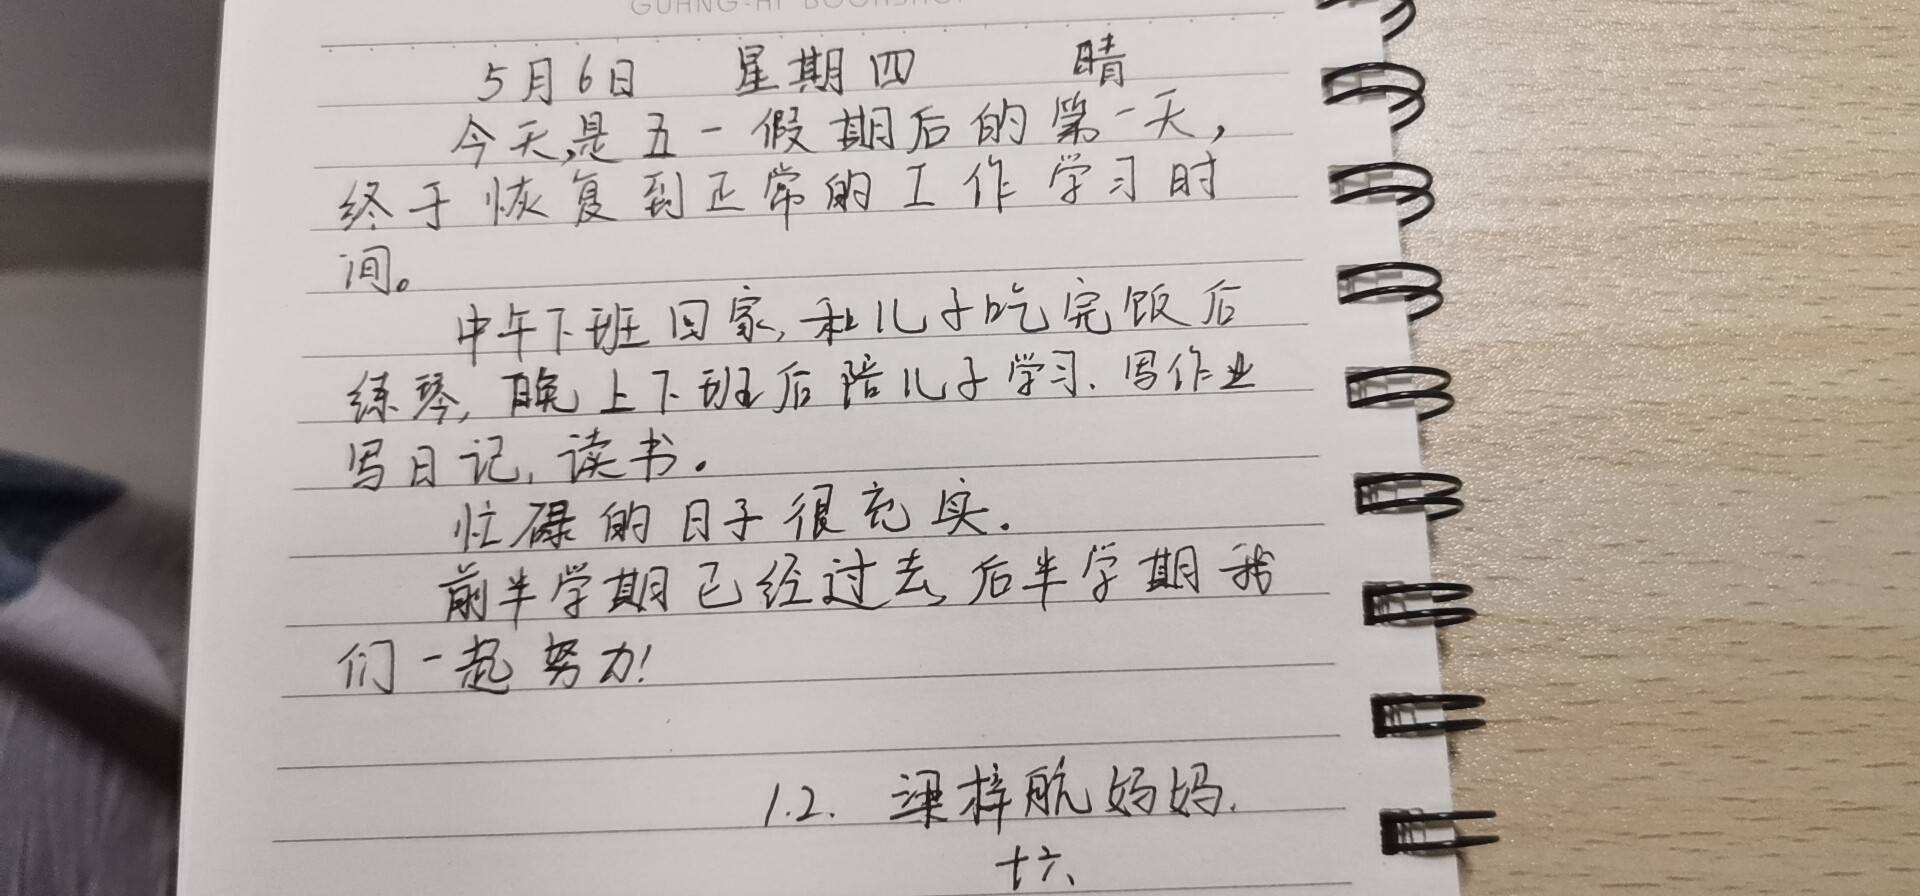 5月6日 星期四 晴
今天是五一假期后的第一天,
终于恢复到正常的工作学习时
间。
中午下班回家,和儿子吃完饭后
练琴,晚上下班后陪儿子学习、写作业
写日记,读书。
忙碌的日子很充实.
前半学期已经过去,后半学期我
们一起努力!
1.2. 梁梓航妈妈.
十六、